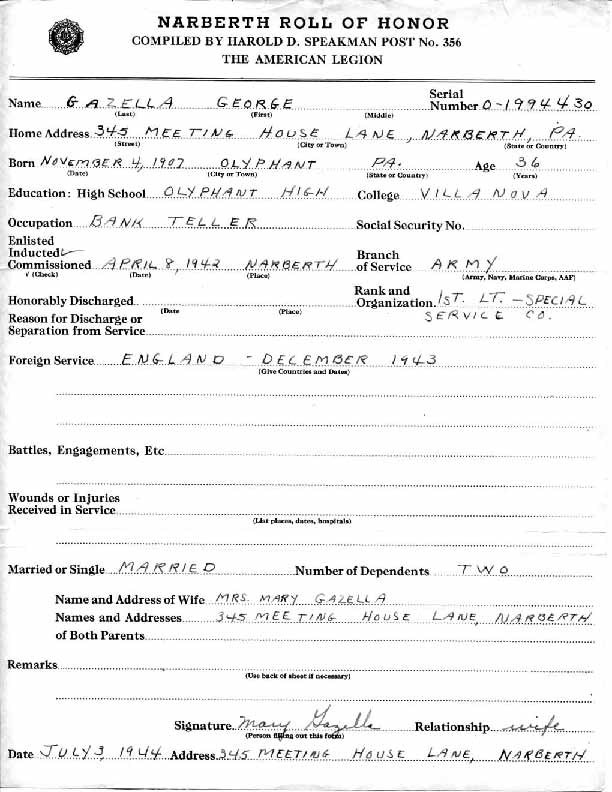 NARBERTH ROLL OF HONOR
COMPILED BY HAROLD D. SPEAKMAN POST No. 356
THE AMERICAN LEGION
Name GAZELLA GEORGE Serial Number O-1994430
(Last) (First) (Middle)
Home Address 345 MEETING HOUSE LANE, NARBERTH, PA.
(Street) (City or Town) (State or Country)
Born NOVEMBER 4, 1907 OLYPHANT PA. Age 36
(Date) (City or Town) (State or Country) (Years)
Education: High School OLYPHANT HIGH College VILLA NOVA
Occupation BANK TELLER Social Security No.
Enlisted
Inducted ✓ Branch
Commissioned APRIL 8, 1942 NARBERTH of Service ARMY
√ (Check) (Date) (Place) (Army, Navy, Marine Corps, AAF)
Rank and
Honorably Discharged Organization 1ST. LT. - SPECIAL
(Date (Place) SERVICE CO.
Reason for Discharge or
Separation from Service
Foreign Service ENGLAND - DECEMBER 1943
(Give Countries and Dates)
Battles, Engagements, Etc
Wounds or Injuries
Received in Service
(List places, dates, hospitals)
Married or Single MARRIED Number of Dependents TWO
Name and Address of Wife MRS. MARY GAZELLA
Names and Addresses 345 MEETING HOUSE LANE, NARBERTH
of Both Parents
Remarks
(Use back of sheet if necessary)
Signature Mary Gazella Relationship wife
(Person filling out this form)
Date JULY 3, 1944 Address 345 MEETING HOUSE LANE, NARBERTH